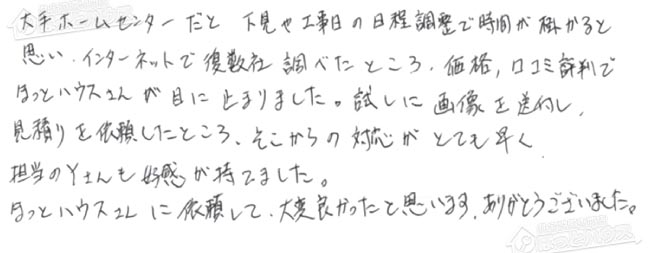 大手ホームセンターだと 下見や工事日の日程調整で時間が掛かると
思い、インターネットで複数社 調べたところ、価格,口コミ評判で
ほっとハウスさんが目に止まりました。試しに画像を送付し、
見積りを依頼したところ、そこからの対応がとても早く
担当のYさんも好感が持てました。
ほっとハウスさんに依頼して、大変良かったと思います。ありがとうございました。